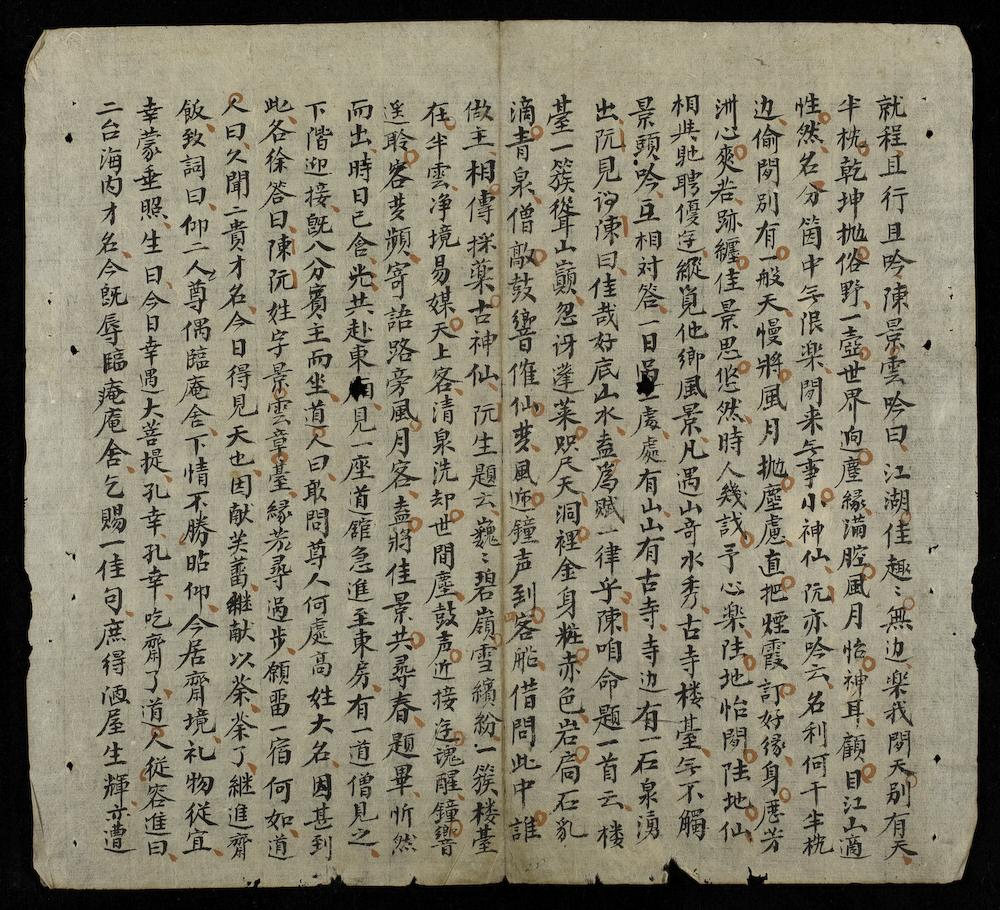 就程且行且吟陳景雲吟曰江湖佳趣〻無边楽我閑天別有天
半枕乾坤抛俗野一壺世界逈塵縁満腔風月怡神耳顧目江山適
性然名分箇中無限楽閑来無事小神仙阮亦吟云名利何干半枕
边偷閑別有一般天慢將風月抛塵慮直把煙霞訂好縁身歴芳
洲心爽若跡纏佳景思悠然時人幾哉予心楽陆地怡閑陆地仙
相與馳聘優遊縱覓他鄉風景凡遇山奇水秀古寺楼臺無不觸
景頭吟互相対答一日過一處處有山山有古寺寺边有一石泉湧
出阮見謂陳曰佳哉好底山水盍爲賦一律乎陳咱命題一首云楼
臺一簇聳山巔忽讶蓬莱咫尺天洞裡金身粧赤色岩扃石乳
滴青泉僧敲鼓響催仙夢風迎鐘声到客船借問此中誰
做主相傳採薬古神仙阮生題云巍〻碧嶺雪繽紛一簇楼臺
在半雲净境易媒天上客清泉洗却世間塵鼓声近接迷魂醒鐘響
遥聆客夢頻寄語路旁風月客盍將佳景共尋春題畢忻然
而出時日已含光共赴東廂見一座道舘急進至東房有一道僧見之
下階迎接旣八分賓主而坐道人曰敢問尊人何處高姓大名因甚到
此各徐答曰陳阮姓字景雲章臺縁芳尋過步願畱一宿何如道
人曰久聞二貴才名今日得見天也因献芙蓄継献以茶茶了継進齋
飯致詞曰仰二人尊偶臨庵舍下情不勝昭仰今居齋境礼物從宜
幸蒙垂照生曰今日幸遇大菩提孔幸孔幸吃齋了道人從容進曰
二台海内才名今旣辱臨庵庵舍乞賜一佳句庶得洒屋生輝亦遭